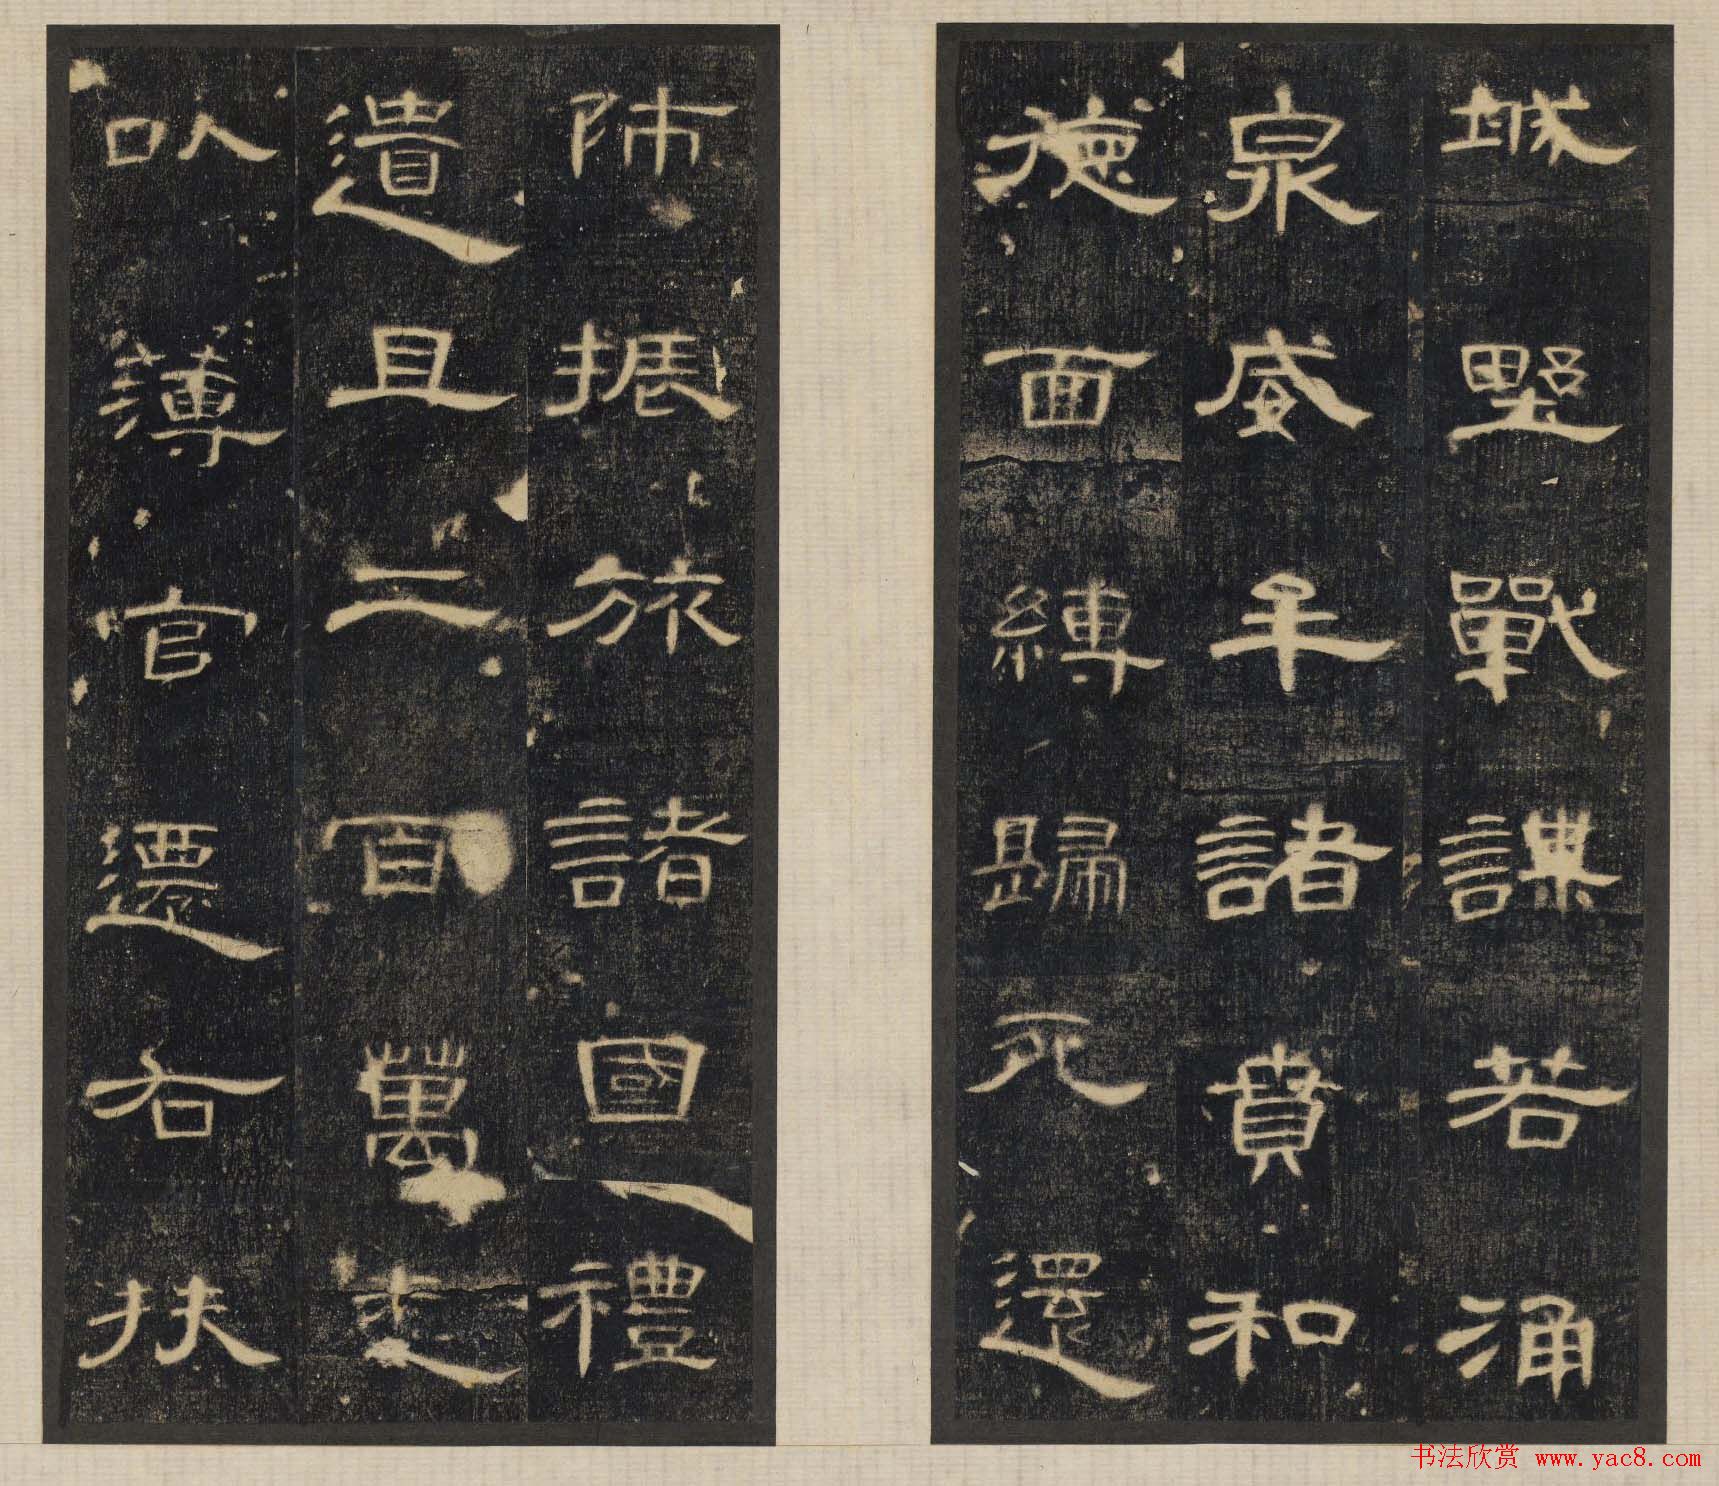 城野戰謀若涌
泉威牟諸賁和
德面縛歸死還
師振旅諸國禮
遺且二百萬悉
以薄官遷右扶
书法欣赏 www.yac8.com